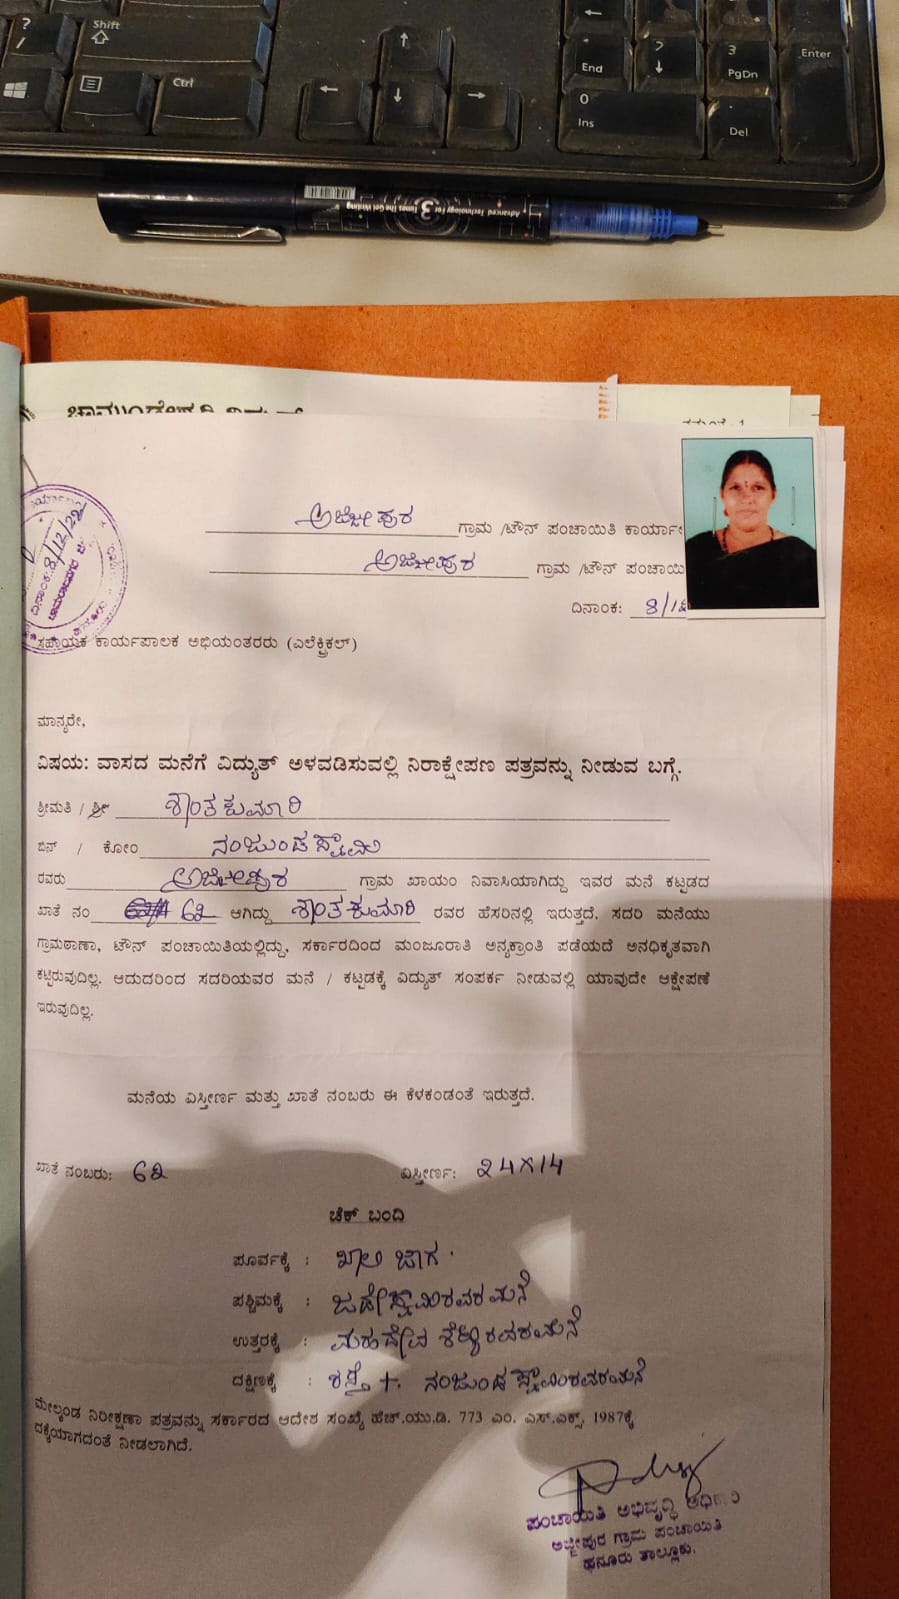 ? /
Shift
Ctrl
End
2
3
PgDn
Enter
0
Ins
Del
Advanced Technology For 3 Times The Gel Writing
ದಿನಾಂಕ: 8/12/22
ಅಜ್ಜೀಪುರ ಗ್ರಾಮ /ಟೌನ್ ಪಂಚಾಯಿತಿ
ಅಜ್ಜೀಪುರ ಗ್ರಾಮ /ಟೌನ್
ದಿನಾಂಕ:
ಸಹಾಯಕ ಕಾರ್ಯಪಾಲಕ ಅಭಿಯಂತರರು (ಎಲೆಕ್ಟ್ರಿಕಲ್)
ಮಾನ್ಯರೇ,
ವಿಷಯ: ವಾಸದ ಮನೆಗೆ ವಿದ್ಯುತ್ ಅಳವಡಿಸುವಲ್ಲಿ ನಿರಾಕ್ಷೇಪಣ ಪತ್ರವನ್ನು ನೀಡುವ ಬಗ್ಗೆ.
ಶ್ರೀಮತಿ / ಶ್ರೀ ಶಾಂತಕುಮಾರಿ
ಬಿನ್ / ಕೋಂ ನಂಜುಂಡಸ್ವಾಮಿ
ರವರು ಅಜ್ಜೀಪುರ ಗ್ರಾಮ ಖಾಯಂ ನಿವಾಸಿಯಾಗಿದ್ದು ಇವರ ಮನೆ ಕಟ್ಟಡದ
ಖಾತೆ ನಂ 62 ಆಗಿದ್ದು ಶಾಂತಕುಮಾರಿ ರವರ ಹೆಸರಿನಲ್ಲಿ ಇರುತ್ತದೆ. ಸದರಿ ಮನೆಯು
ಗ್ರಾಮಠಾಣಾ, ಟೌನ್ ಪಂಚಾಯಿತಿಯಲ್ಲಿದ್ದು, ಸರ್ಕಾರದಿಂದ ಮಂಜೂರಾತಿ ಅನ್ಯಕ್ರಾಂತಿ ಪಡೆಯದೆ ಅನಧಿಕೃತವಾಗಿ
ಕಟ್ಟಿರುವುದಿಲ್ಲ. ಆದುದರಿಂದ ಸದರಿಯವರ ಮನೆ / ಕಟ್ಟಡಕ್ಕೆ ವಿದ್ಯುತ್ ಸಂಪರ್ಕ ನೀಡುವಲ್ಲಿ ಯಾವುದೇ ಆಕ್ಷೇಪಣೆ
ಇರುವುದಿಲ್ಲ.
ಮನೆಯ ವಿಸ್ತೀರ್ಣ ಮತ್ತು ಖಾತೆ ನಂಬರು ಈ ಕೆಳಕಂಡಂತೆ ಇರುತ್ತದೆ.
ಖಾತೆ ನಂಬರು: 62 ವಿಸ್ತೀರ್ಣ: 24X14
ಚೆಕ್ ಬಂದಿ
ಪೂರ್ವಕ್ಕೆ : ಖಾಲಿ ಜಾಗ.
ಪಶ್ಚಿಮಕ್ಕೆ : ಜಡೇಸ್ವಾಮಿರವರ ಮನೆ
ಉತ್ತರಕ್ಕೆ : ಮಹದೇವ ಶೆಟ್ಟಿರವರಮನೆ
ದಕ್ಷಿಣಕ್ಕೆ : ರಸ್ತೆ +. ನಂಜುಂಡಸ್ವಾಮಿರವರಮನೆ
ಮೇಲ್ಕಂಡ ನಿರೀಕ್ಷಣಾ ಪತ್ರವನ್ನು ಸರ್ಕಾರದ ಆದೇಶ ಸಂಖ್ಯೆ ಹೆಚ್.ಯು.ಡಿ. 773 ಎಂ. ಎಸ್.ಎಕ್ಸ್. 1987ಕ್ಕೆ
ದಕ್ಕೆಯಾಗದಂತೆ ನೀಡಲಾಗಿದೆ.
ಪಂಚಾಯಿತಿ ಅಭಿವೃದ್ಧಿ
ಅಜ್ಜೀಪುರ ಗ್ರಾಮ ಪಂಚಾಯಿತಿ
ಹನೂರು ತಾಲ್ಲೂಕು.